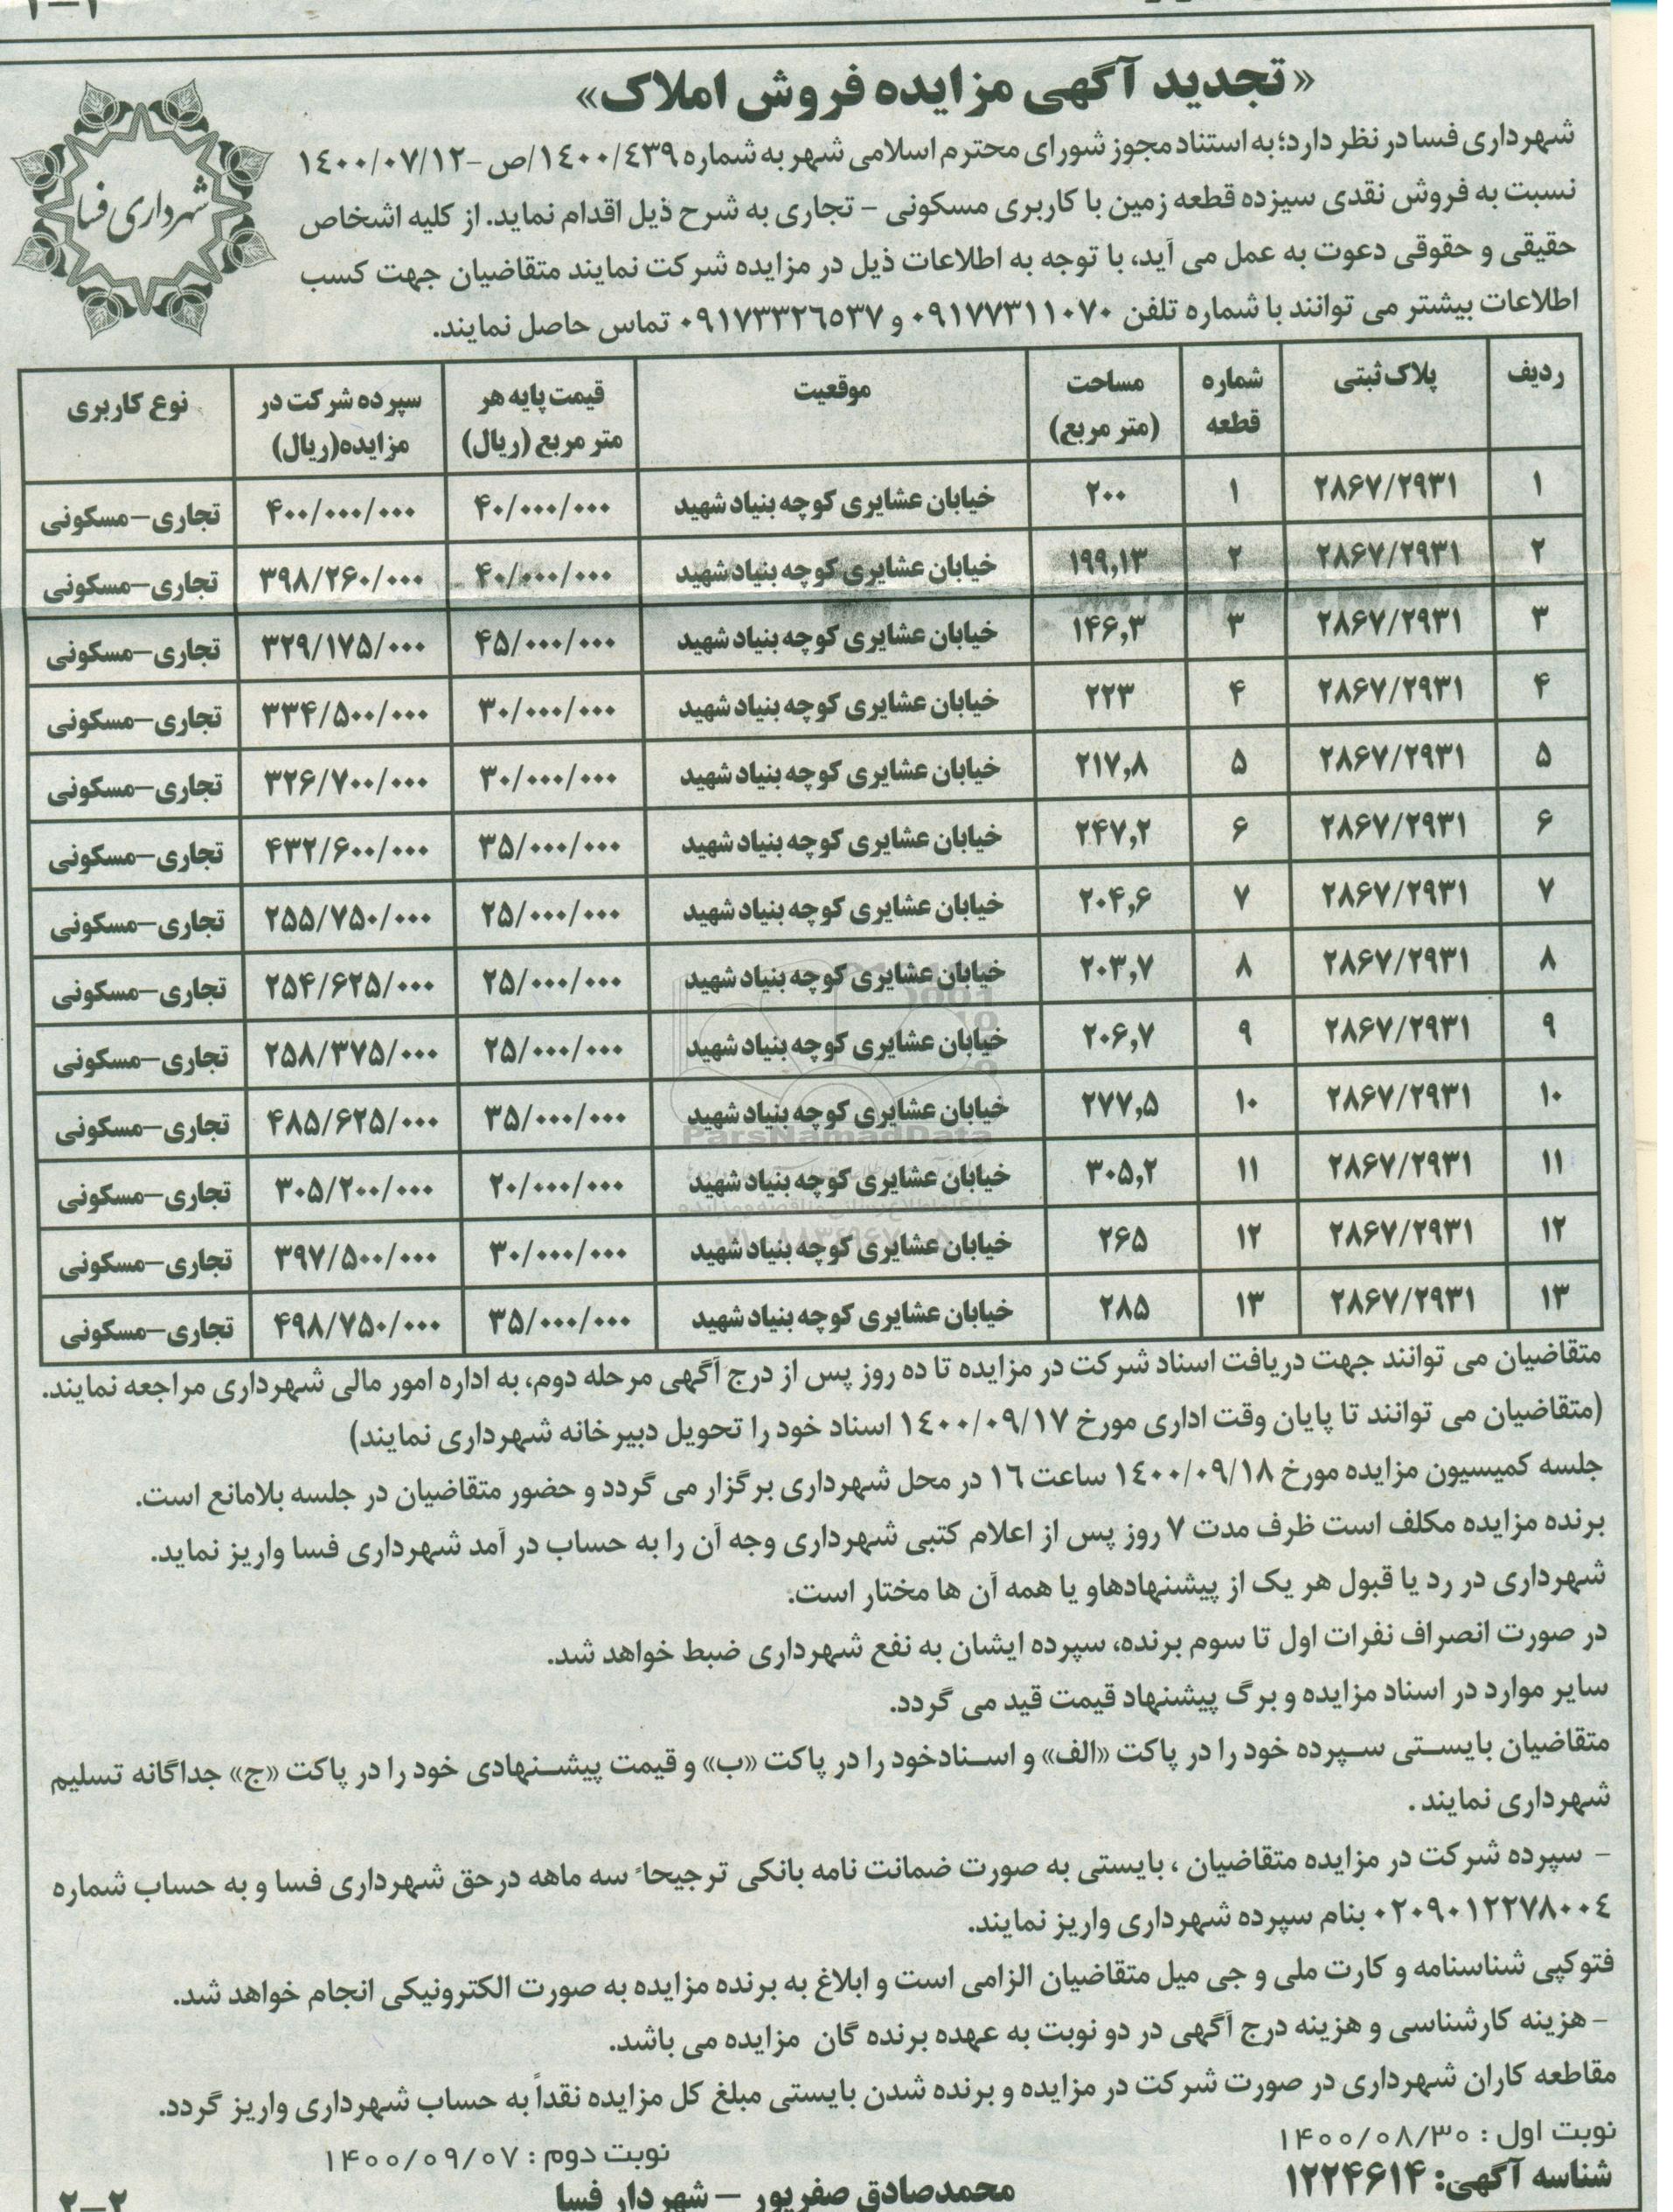 «تجدید آگهی مزایده فروش املاک»
شهرداری فسا
شهرداری فسا در نظر دارد؛ به استناد مجوز شورای محترم اسلامی شهر به شماره ۱۴۰۰/۴۳۹/ص -۱۴۰۰/۰۷/۱۲
نسبت به فروش نقدی سیزده قطعه زمین با کاربری مسکونی - تجاری به شرح ذیل اقدام نماید. از کلیه اشخاص
حقیقی و حقوقی دعوت به عمل می آید، با توجه به اطلاعات ذیل در مزایده شرکت نمایند متقاضیان جهت کسب
اطلاعات بیشتر می توانند با شماره تلفن ۰۹۱۷۷۳۱۱۰۷۰ و ۰۹۱۷۳۳۲۶۵۳۷ تماس حاصل نمایند.
ردیف پلاک ثبتی شماره قطعه مساحت (متر مربع) موقعیت قیمت پایه هر متر مربع (ریال) سپرده شرکت در مزایده(ریال) نوع کاربری
۱ ۲۸۶۷/۲۹۳۱ ۱ ۲۰۰ خیابان عشایری کوچه بنیاد شهید ۴۰/۰۰۰/۰۰۰ ۴۰۰/۰۰۰/۰۰۰ تجاری-مسکونی
۲ ۲۸۶۷/۲۹۳۱ ۲ ۱۹۹,۱۳ خیابان عشایری کوچه بنیاد شهید ۴۰/۰۰۰/۰۰۰ ۳۹۸/۲۶۰/۰۰۰ تجاری-مسکونی
۳ ۲۸۶۷/۲۹۳۱ ۳ ۱۴۶,۳ خیابان عشایری کوچه بنیاد شهید ۴۵/۰۰۰/۰۰۰ ۳۲۹/۱۷۵/۰۰۰ تجاری-مسکونی
۴ ۲۸۶۷/۲۹۳۱ ۴ ۲۲۳ خیابان عشایری کوچه بنیاد شهید ۳۰/۰۰۰/۰۰۰ ۳۳۴/۵۰۰/۰۰۰ تجاری-مسکونی
۵ ۲۸۶۷/۲۹۳۱ ۵ ۲۱۷,۸ خیابان عشایری کوچه بنیاد شهید ۳۰/۰۰۰/۰۰۰ ۳۲۶/۷۰۰/۰۰۰ تجاری-مسکونی
۶ ۲۸۶۷/۲۹۳۱ ۶ ۲۴۷,۲ خیابان عشایری کوچه بنیاد شهید ۳۵/۰۰۰/۰۰۰ ۴۳۲/۶۰۰/۰۰۰ تجاری-مسکونی
۷ ۲۸۶۷/۲۹۳۱ ۷ ۲۰۴,۶ خیابان عشایری کوچه بنیاد شهید ۲۵/۰۰۰/۰۰۰ ۲۵۵/۷۵۰/۰۰۰ تجاری-مسکونی
۸ ۲۸۶۷/۲۹۳۱ ۸ ۲۰۳,۷ خیابان عشایری کوچه بنیاد شهید ۲۵/۰۰۰/۰۰۰ ۲۵۴/۶۲۵/۰۰۰ تجاری-مسکونی
۹ ۲۸۶۷/۲۹۳۱ ۹ ۲۰۶,۷ خیابان عشایری کوچه بنیاد شهید ۲۵/۰۰۰/۰۰۰ ۲۵۸/۳۷۵/۰۰۰ تجاری-مسکونی
۱۰ ۲۸۶۷/۲۹۳۱ ۱۰ ۲۷۷,۵ خیابان عشایری کوچه بنیاد شهید ۳۵/۰۰۰/۰۰۰ ۴۸۵/۶۲۵/۰۰۰ تجاری-مسکونی
ParsNamadData
۱۱ ۲۸۶۷/۲۹۳۱ ۱۱ ۳۰۵,۲ خیابان عشایری کوچه بنیاد شهید ۲۰/۰۰۰/۰۰۰ ۳۰۵/۲۰۰/۰۰۰ تجاری-مسکونی
۱۲ ۲۸۶۷/۲۹۳۱ ۱۲ ۲۶۵ خیابان عشایری کوچه بنیاد شهید ۳۰/۰۰۰/۰۰۰ ۳۹۷/۵۰۰/۰۰۰ تجاری-مسکونی
۱۳ ۲۸۶۷/۲۹۳۱ ۱۳ ۲۸۵ خیابان عشایری کوچه بنیاد شهید ۳۵/۰۰۰/۰۰۰ ۴۹۸/۷۵۰/۰۰۰ تجاری-مسکونی
متقاضیان می توانند جهت دریافت اسناد شرکت در مزایده تا ده روز پس از درج آگهی مرحله دوم، به اداره امور مالی شهرداری مراجعه نمایند.
(متقاضیان می توانند تا پایان وقت اداری مورخ ۱۴۰۰/۰۹/۱۷ اسناد خود را تحویل دبیرخانه شهرداری نمایند)
جلسه کمیسیون مزایده مورخ ۱۴۰۰/۰۹/۱۸ ساعت ۱۶ در محل شهرداری برگزار می گردد و حضور متقاضیان در جلسه بلامانع است.
برنده مزایده مکلف است ظرف مدت ۷ روز پس از اعلام کتبی شهرداری وجه آن را به حساب در آمد شهرداری فسا واریز نماید.
شهرداری در رد یا قبول هر یک از پیشنهادهاو یا همه آن ها مختار است.
در صورت انصراف نفرات اول تا سوم برنده، سپرده ایشان به نفع شهرداری ضبط خواهد شد.
سایر موارد در اسناد مزایده و برگ پیشنهاد قیمت قید می گردد.
متقاضیان بایستی سپرده خود را در پاکت «الف» و اسنادخود را در پاکت «ب» و قیمت پیشنهادی خود را در پاکت «ج» جداگانه تسلیم
شهرداری نمایند .
- سپرده شرکت در مزایده متقاضیان ، بایستی به صورت ضمانت نامه بانکی ترجیحاً سه ماهه درحق شهرداری فسا و به حساب شماره
۰۲۰۹۰۱۲۲۷۸۰۰۴ بنام سپرده شهرداری واریز نمایند.
فتوکپی شناسنامه و کارت ملی و جی میل متقاضیان الزامی است و ابلاغ به برنده مزایده به صورت الکترونیکی انجام خواهد شد.
- هزینه کارشناسی و هزینه درج آگهی در دو نوبت به عهده برنده گان مزایده می باشد.
مقاطعه کاران شهرداری در صورت شرکت در مزایده و برنده شدن بایستی مبلغ کل مزایده نقداً به حساب شهرداری واریز گردد.
نوبت اول : ۱۴۰۰/۰۸/۳۰
نوبت دوم : ۱۴۰۰/۰۹/۰۷
شناسه آگهی: ۱۲۲۴۶۱۴
محمدصادق صفرپور - شهردار فسا
۲-۲